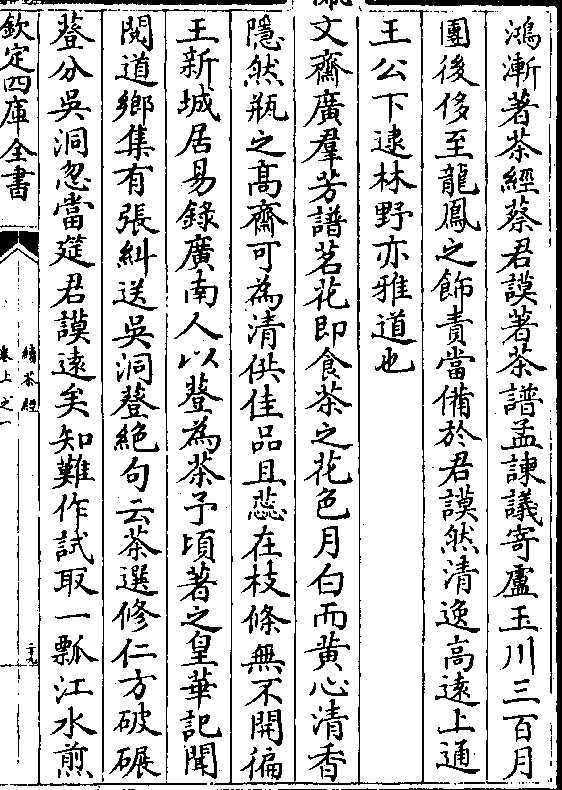 鴻漸著茶經蔡君謨著茶譜孟諫議寄盧玉川三百月
團後侈至龍鳳之飾責當備於君謨然清逸高遠上通
王公下逮林野亦雅道也
文齋廣羣芳譜茗花即食茶之花色月白而黄心清香
隱然瓶之髙齋可為清供佳品且蕊在枝條無不開徧
王新城居易錄廣南人以䔲為茶予頃著之皇華記聞
閱道鄉集有張糾送吳洞䔲絕句云茶選修仁方破碾
䔲分吳洞忽當筵君謨遠矣知難作試取一瓢江水煎
欽定四庫全書
續茶經
卷上之一